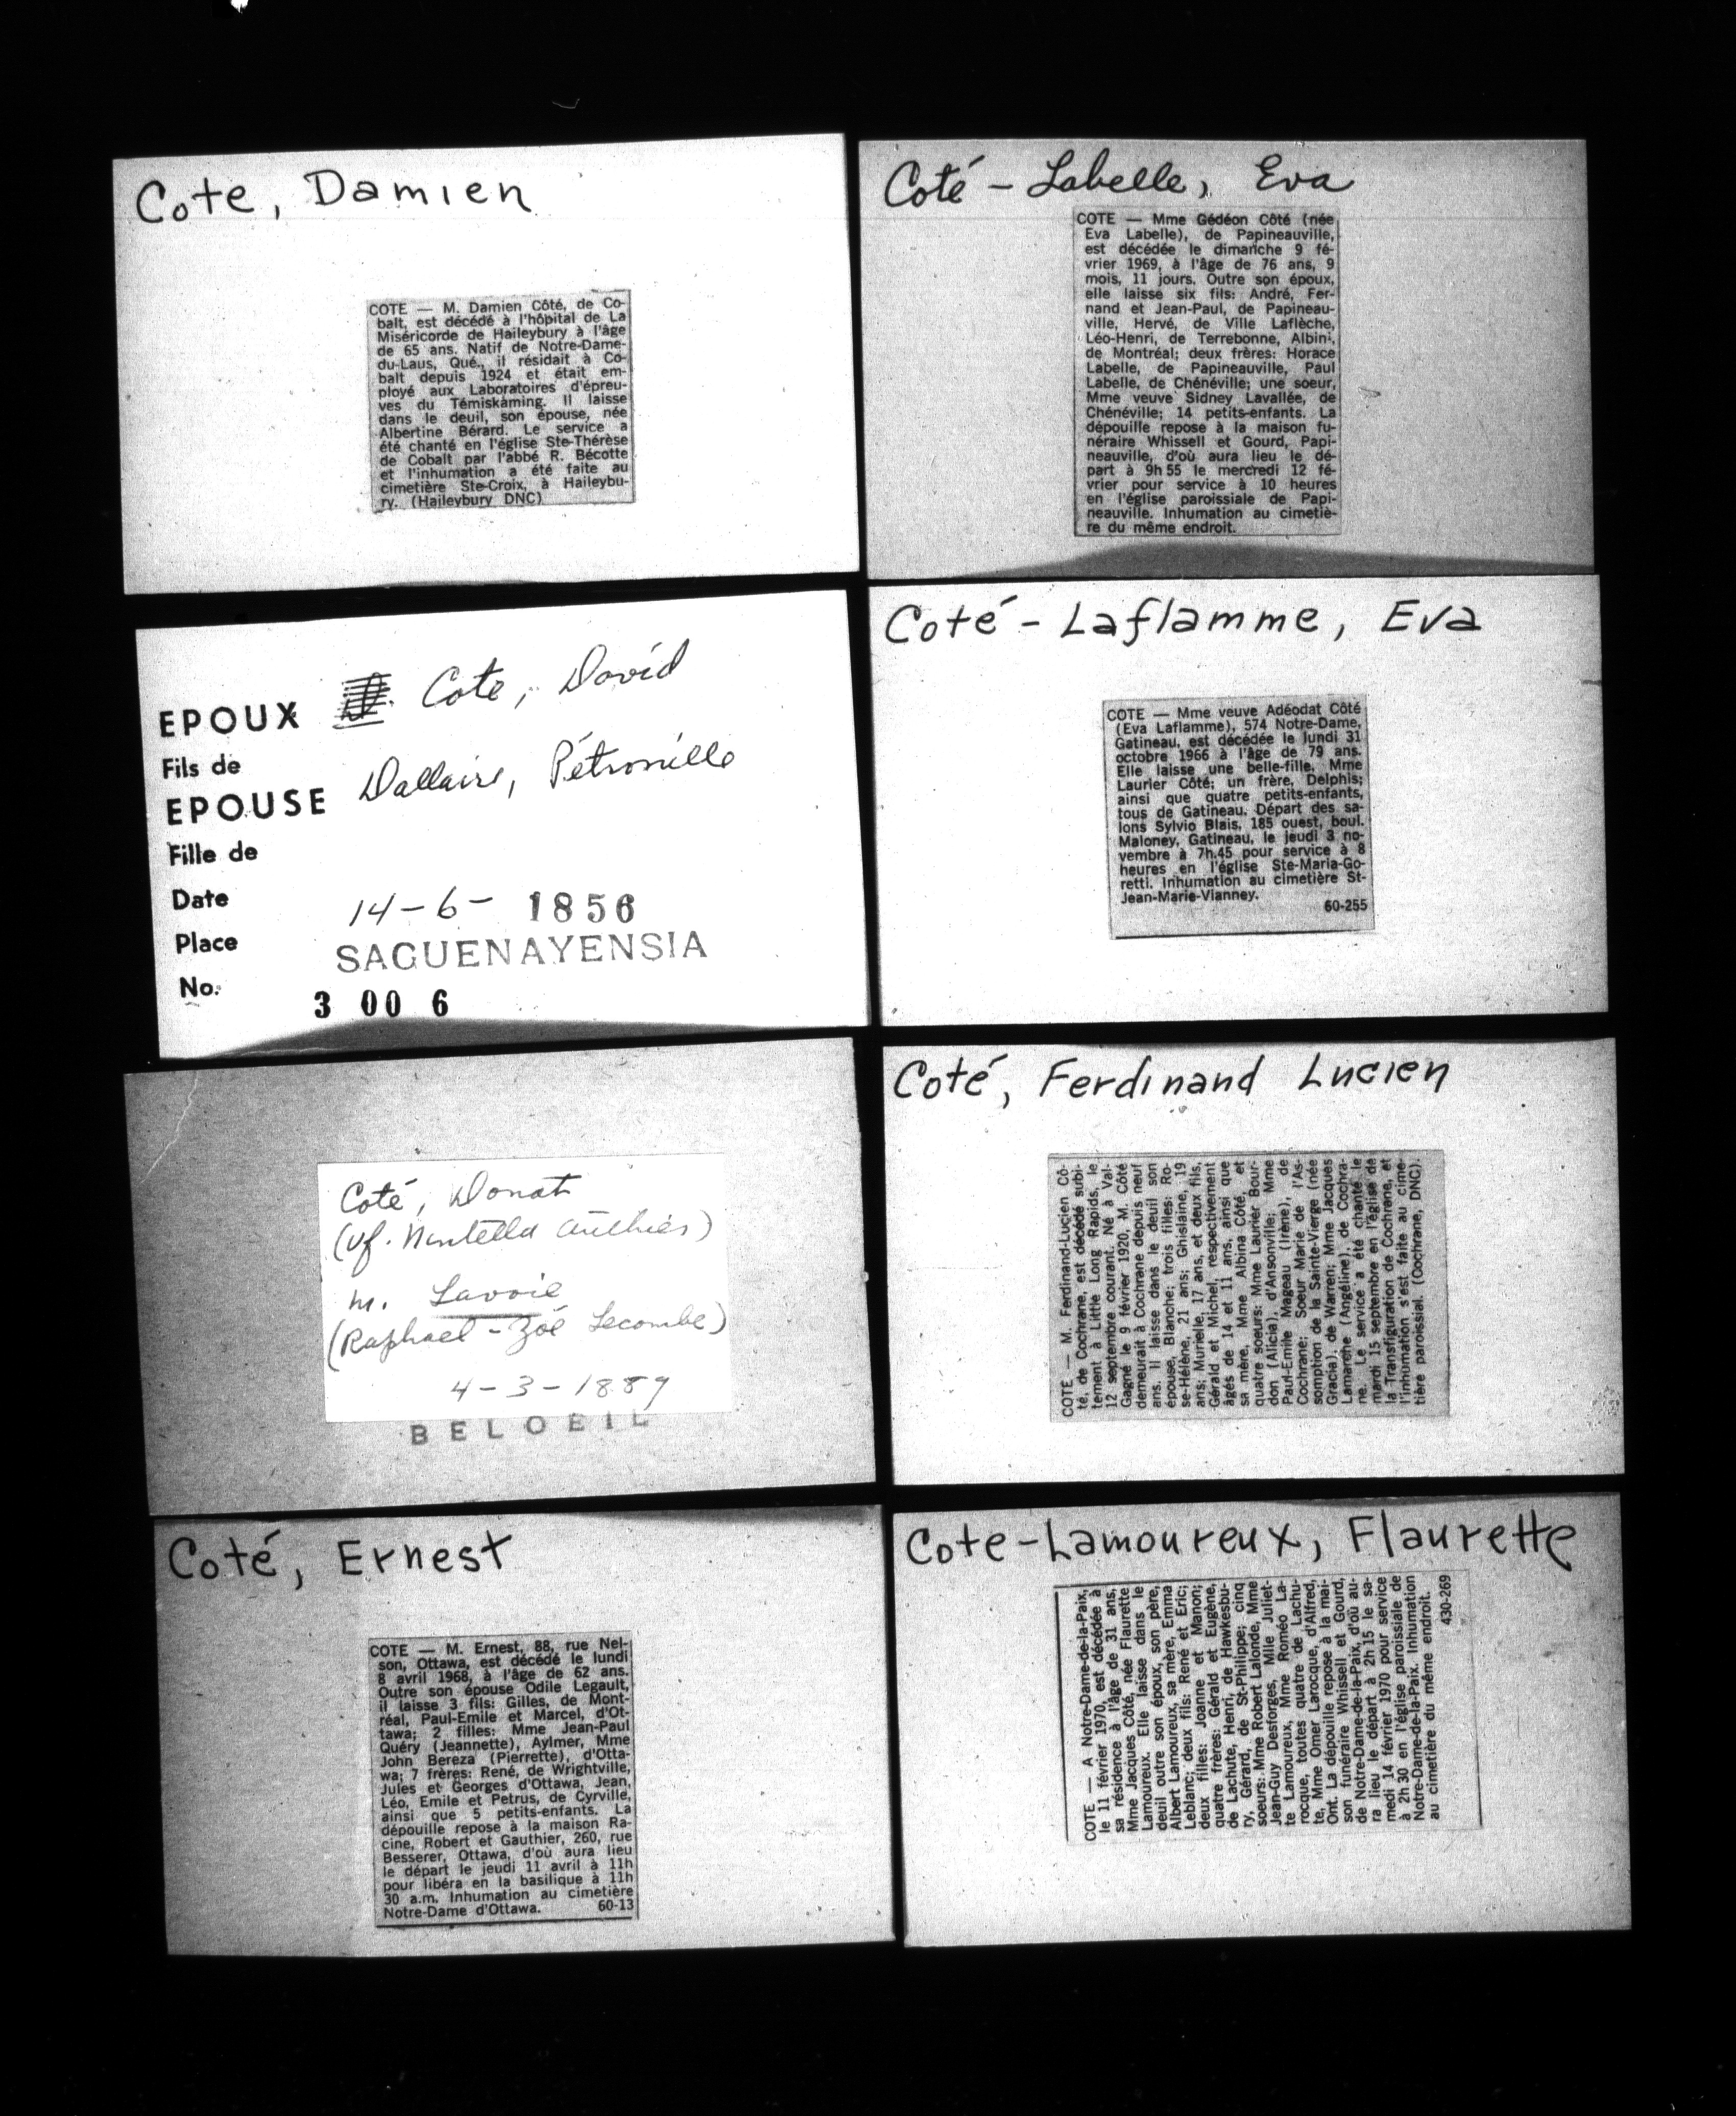 Cote, Damien
COTE — M. Damien Côté, de Co-
balt, est décédé à l'hôpital de La
Miséricorde de Haileybury à l'âge
de 65 ans. Natif de Notre-Dame-
du-Laus, Qué., il résidait à Co-
balt depuis 1924 et était em-
ployé aux Laboratoires d'épreu-
ves du Témiskaming. Il laisse
dans le deuil, son épouse, née
Albertine Bérard. Le service a
été chanté en l'église Ste-Thérèse
de Cobalt par l'abbé R. Bécotte
et l'inhumation a été faite au
cimetière Ste-Croix, à Haileybu-
ry. (Haileybury DNC)
EPOUX Cote, David
Fils de
EPOUSE Dallaire, Pétronille
Fille de
Date 14-6- 1856
Place SAGUENAYENSIA
No. 3 00 6
Coté, Donat
(vf. Authier)
m. Lavoie
(Raphael - Zoé Lecombe)
4-3-1889
BELOEIL
Coté, Ernest
COTE — M. Ernest, 88, rue Nel-
son, Ottawa, est décédé le lundi
8 avril 1968, à l'âge de 62 ans.
Outre son épouse Odile Legault,
il laisse 3 fils: Gilles, de Mont-
réal, Paul-Emile et Marcel, d'Ot-
tawa; 2 filles: Mme Jean-Paul
Quéry (Jeannette), Aylmer, Mme
John Bereza (Pierrette), d'Otta-
wa; 7 frères: René, de Wrightville,
Jules et Georges d'Ottawa, Jean,
Léo, Emile et Petrus, de Cyrville,
ainsi que 5 petits-enfants. La
dépouille repose à la maison Ra-
cine, Robert et Gauthier, 260, rue
Besserer, Ottawa, d'où aura lieu
le départ le jeudi 11 avril à 11h
pour libéra en la basilique à 11h
30 a.m. Inhumation au cimetière
Notre-Dame d'Ottawa. 60-13
Coté - Labelle, Eva
COTE — Mme Gédéon Côté (née
Eva Labelle), de Papineauville,
est décédée le dimanche 9 fé-
vrier 1969, à l'âge de 76 ans, 9
mois, 11 jours. Outre son époux,
elle laisse six fils: André, Fer-
nand et Jean-Paul, de Papineau-
ville, Hervé, de Ville Laflèche,
Léo-Henri, de Terrebonne, Albini,
de Montréal; deux frères: Horace
Labelle, de Papineauville, Paul
Labelle, de Chénéville; une soeur,
Mme veuve Sidney Lavallée, de
Chénéville; 14 petits-enfants. La
dépouille repose à la maison fu-
néraire Whissell et Gourd, Papi-
neauville, d'où aura lieu le dé-
part à 9h 55 le mercredi 12 fé-
vrier pour service à 10 heures
en l'église paroissiale de Papi-
neauville. Inhumation au cimetiè-
re du même endroit.
Coté - Laflamme, Eva
COTE — Mme veuve Adéodat Côté
(Eva Laflamme), 574 Notre-Dame,
Gatineau, est décédée le lundi 31
octobre 1966 à l'âge de 79 ans.
Elle laisse une belle-fille, Mme
Laurier Côté; un frère, Delphis;
ainsi que quatre petits-enfants,
tous de Gatineau. Départ des sa-
lons Sylvio Blais, 185 ouest, boul.
Maloney, Gatineau, le jeudi 3 no-
vembre à 7h.45 pour service à 8
heures en l'église Ste-Maria-Go-
retti. Inhumation au cimetière St-
Jean-Marie-Vianney.
60-255
Coté, Ferdinand Lucien
COTE — M. Ferdinand-Lucien Cô-
té, de Cochrane, est décédé subi-
tement à Little Long Rapids, le
12 septembre courant. Né à Val-
Gagné le 9 février 1920, M. Côté
demeurait à Cochrane depuis neuf
ans. Il laisse dans le deuil son
épouse, Blanche; trois filles: Ro-
se-Hélène, 21 ans; Ghislaine, 19
ans; Murielle, 17 ans, et deux fils,
Gérald et Michel, respectivement
âgés de 14 et 11 ans, ainsi que
sa mère, Mme Albina Côté, et
quatre soeurs: Mme Laurier Bour-
don (Alicia), d'Ansonville; Mme
Paul-Emile Mageau (Irène), de
Cochrane; Soeur Marie de l'As-
somption de la Sainte-Vierge (née
Gracia), de Warren; Mme Jacques
Lamarche (Angéline), de Cochra-
ne. Le service a été chanté le
mardi 15 septembre en l'église de
la Transfiguration de Cochrane, et
l'inhumation s'est faite au cime-
tière paroissial. (Cochrane, DNC).
Cote-Lamoureux, Flaurette
COTE — A Notre-Dame-de-la-Paix,
le 11 février 1970, est décédée à
sa résidence à l'âge de 31 ans,
Mme Jacques Côté, née Flaurette
Lamoureux. Elle laisse dans le
deuil outre son époux, son père,
Albert Lamoureux, sa mère, Emma
Leblanc; deux fils: René et Eric;
deux filles: Joanne et Manon;
quatre frères: Gérald et Eugène,
de Lachute, Henri, de Hawkesbu-
ry, Gérard, de St-Philippe; cinq
soeurs: Mme Robert Lalonde, Mme
Jean-Guy Desforges, Mlle Juliet-
te Lamoureux, Mme Roméo La-
rocque, toutes quatre de Lachu-
te, Mme Omer Larocque, d'Alfred,
Ont. La dépouille repose à la mai-
son funéraire Whissell et Gourd,
de Notre-Dame-de-la-Paix, d'où au-
ra lieu le départ à 2h 15 le sa-
medi 14 février 1970 pour service
à 2h 30 en l'église paroissiale de
Notre-Dame-de-la-Paix. Inhumation
au cimetière du même endroit.
430-269